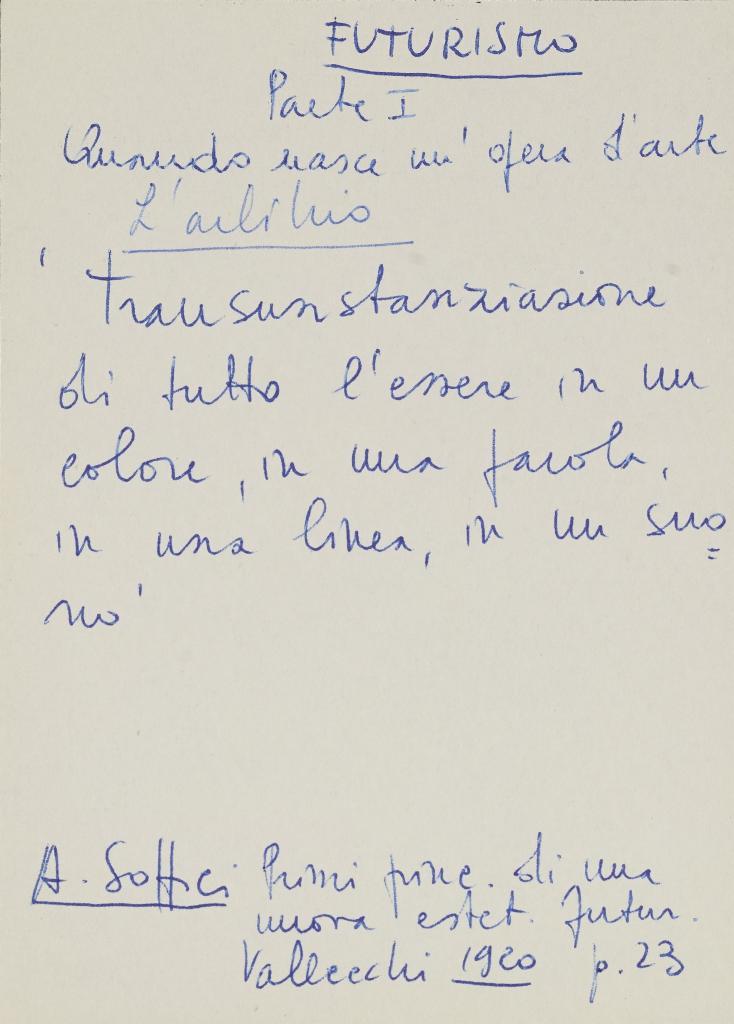 FUTURISMO
Parte I
Quando nasce un' opera d'arte
L'artista
' Transunstanziazione
di tutto l'essere in un
colore, in una parola,
in una linea, in un suo=
no'
A. Soffici Primi princ. di una
nuova estet. futur.
Vallecchi 1920 p. 23